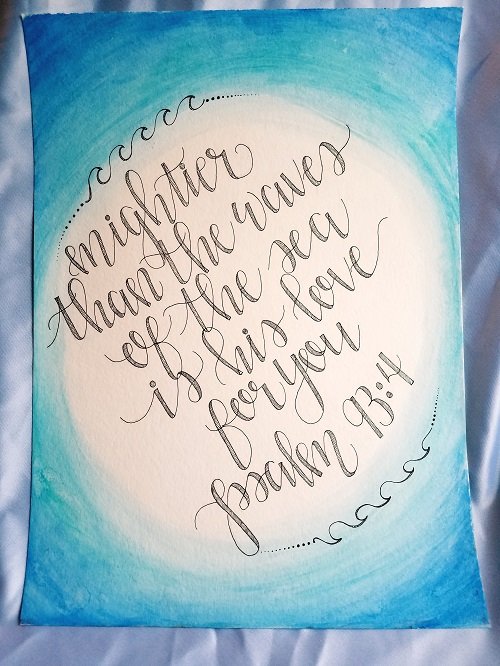 mightier
than the waves
of the sea
is his love
for you
psalm 93:4